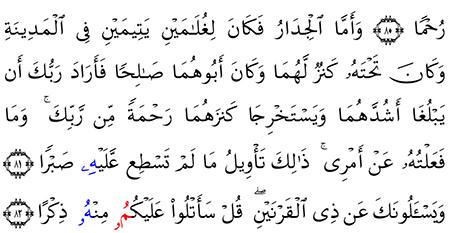 رُحْمًا ۝٨٠ وَأَمَّا ٱلْجِدَارُ فَكَانَ لِغُلَـٰمَيْنِ يَتِيمَيْنِ فِى ٱلْمَدِينَةِ
وَكَانَ تَحْتَهُۥ كَنزٌ لَّهُمَا وَكَانَ أَبُوهُمَا صَـٰلِحًا فَأَرَادَ رَبُّكَ أَن
يَبْلُغَا أَشُدَّهُمَا وَيَسْتَخْرِجَا كَنزَهُمَا رَحْمَةً مِّن رَّبِّكَ ۚ وَمَا
فَعَلْتُهُۥ عَنْ أَمْرِى ۚ ذَٰلِكَ تَأْوِيلُ مَا لَمْ تَسْطِع عَّلَيْهِۦ صَبْرًا ۝٨١
وَيَسْـَٔلُونَكَ عَن ذِى ٱلْقَرْنَيْنِ ۖ قُلْ سَأَتْلُوا۟ عَلَيْكُمُۥ مِنْهُۥ ذِكْرًا ۝٨٢